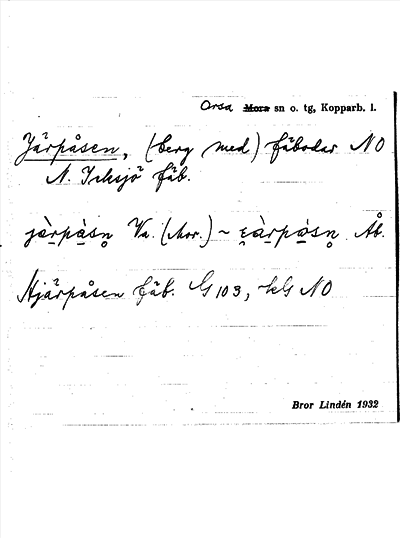 Orsa Mora sn o. tg, Kopparb. l.
Järpåsen, (berg med) fäbodar NO
N. Icksjö fäb.
jä̀rpå̀sn̥ Va. (Mor.) ~ ε̯à̱rpå̀sn̥ Åb.
Hjärpåsen fäb. G 103, kG NO
Bror Lindén 1932